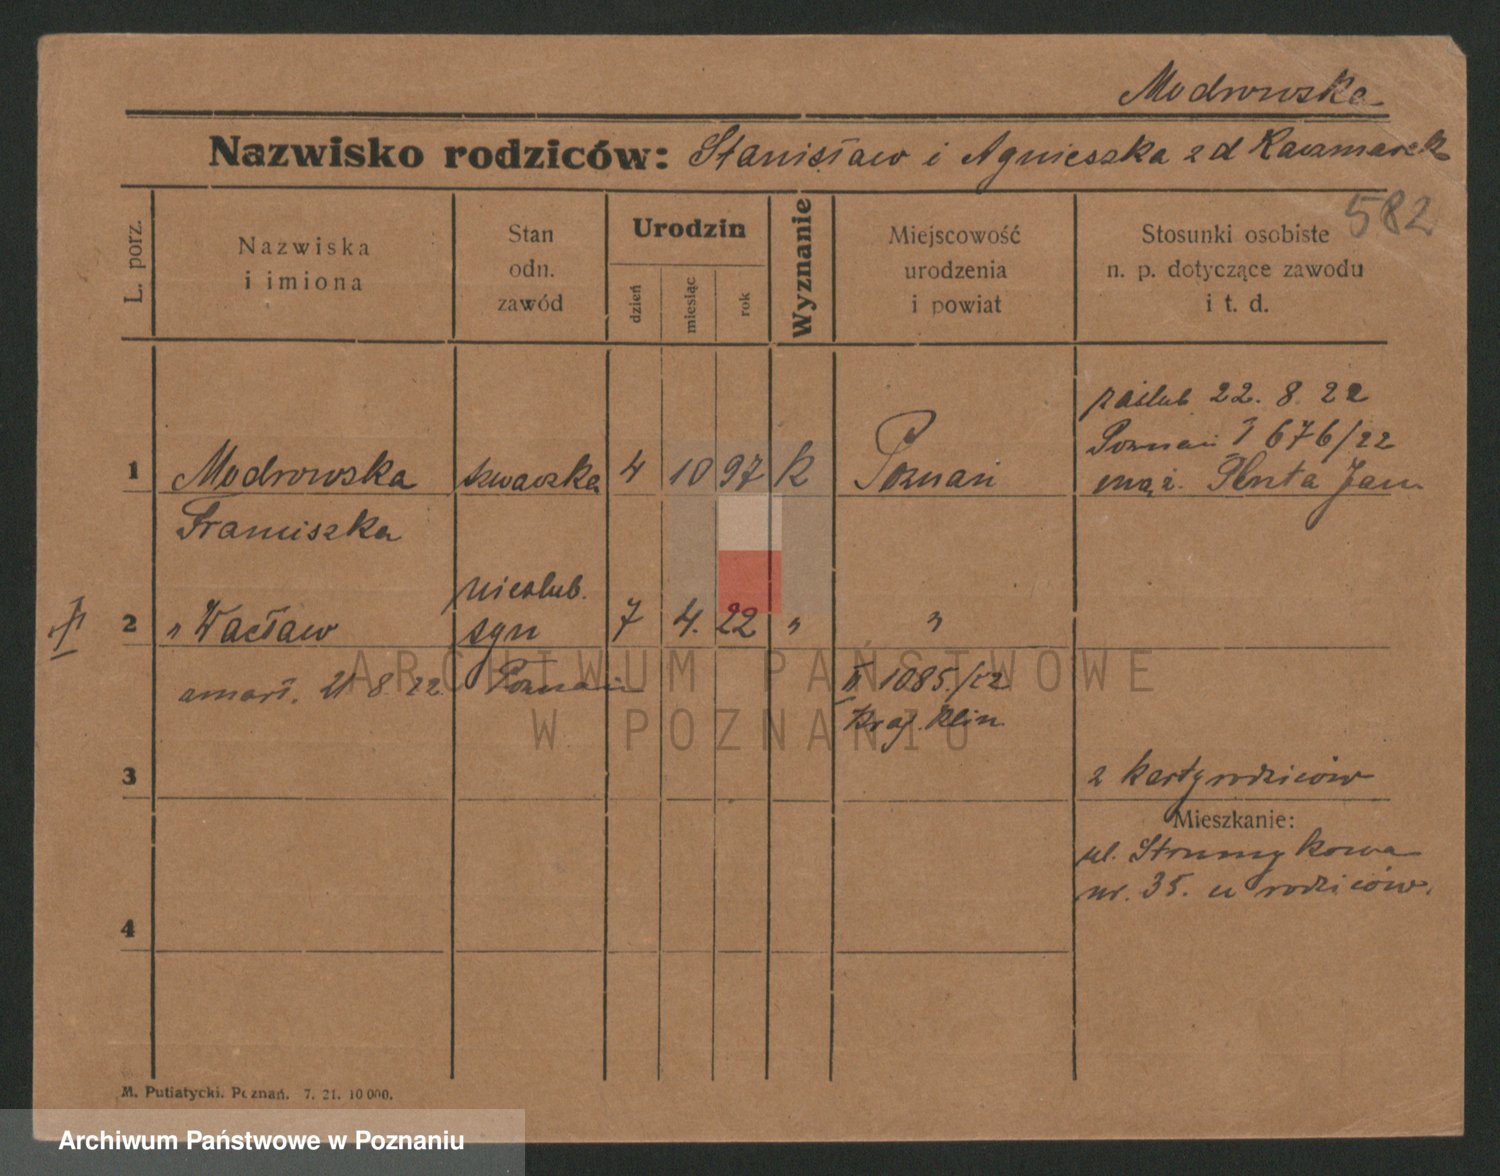 Modrowska
Nazwisko rodziców: Stanisław i Agnieszka z d Kaczmarek
582
L. porz.
Nazwiska
i imiona
Stan
odn.
zawód
Urodzin
dzień
miesiąc
rok
Wyznanie
Miejscowość
urodzenia
i powiat
Stosunki osobiste
n. p. dotyczące zawodu
i t. d.
1 Modrowska szwaczka 4 10 97 k Poznań
Franciszka
zaślub 22. 8. 22
Poznań I 676/22
mąż. Plenta Jan
2 " Wacław nieślub. syn 7 4. 22 " "
zmarł. 21 8. 22. Poznań II 1085./22
Kraj. klin.
3
z karty rodziców
Mieszkanie:
ul. Strumykowa
nr. 35. u rodziców.
4
M. Putiatycki. Poznań. 7. 21. 10 000.
ARCHIWUM PAŃSTWOWE
W POZNANIU
Archiwum Państwowe w Poznaniu